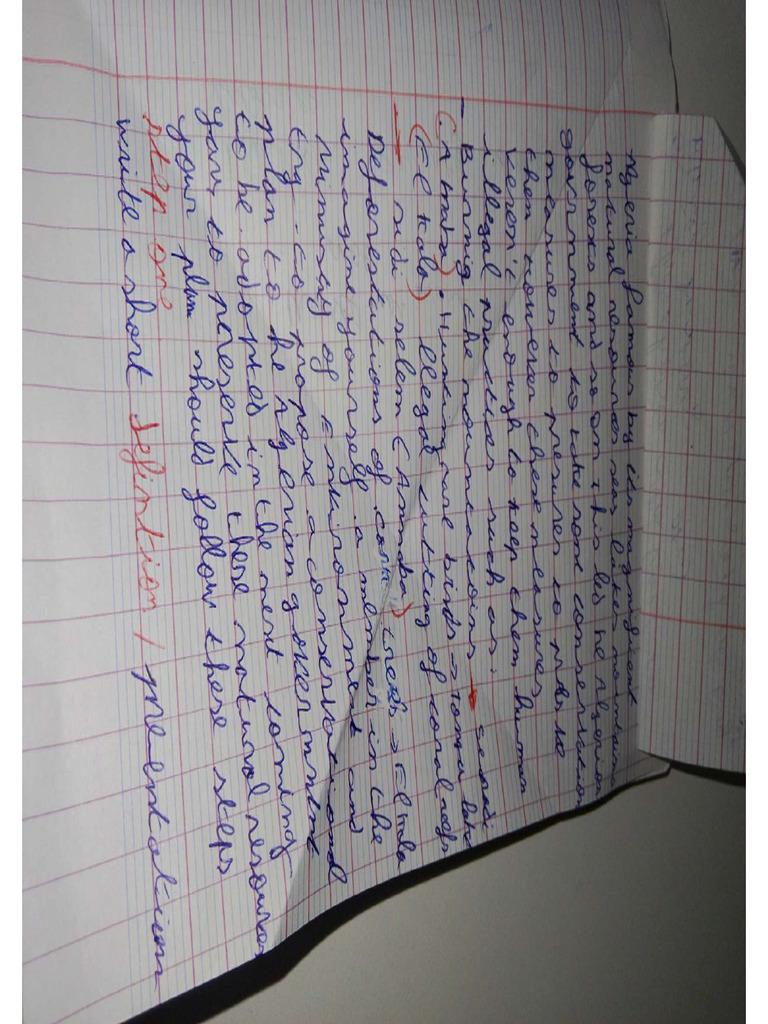 Algeria famous by its magnificent
natural resources seas lakes mountains
forexs and so on this led the Algerian
government to take some conservation
measures to preserve to make
them however these measures
weren't enough to keep them human
illegal practices such as:
- Burning the mountains → seraidi
(Annaba). Hunting rare birds → Tonga lake
(El Kala) illegal cutting of coral reefs
→ sidi selem (Annaba)
Deforestations of → El Kala
imagine yourself a member in the
ministry of environment and
try to propose a conservational
plan to the Algerian government
to be adopted in the next coming
years to preserve these natural resources
your plan should follow these steps
step one
write a short defintion / presentation